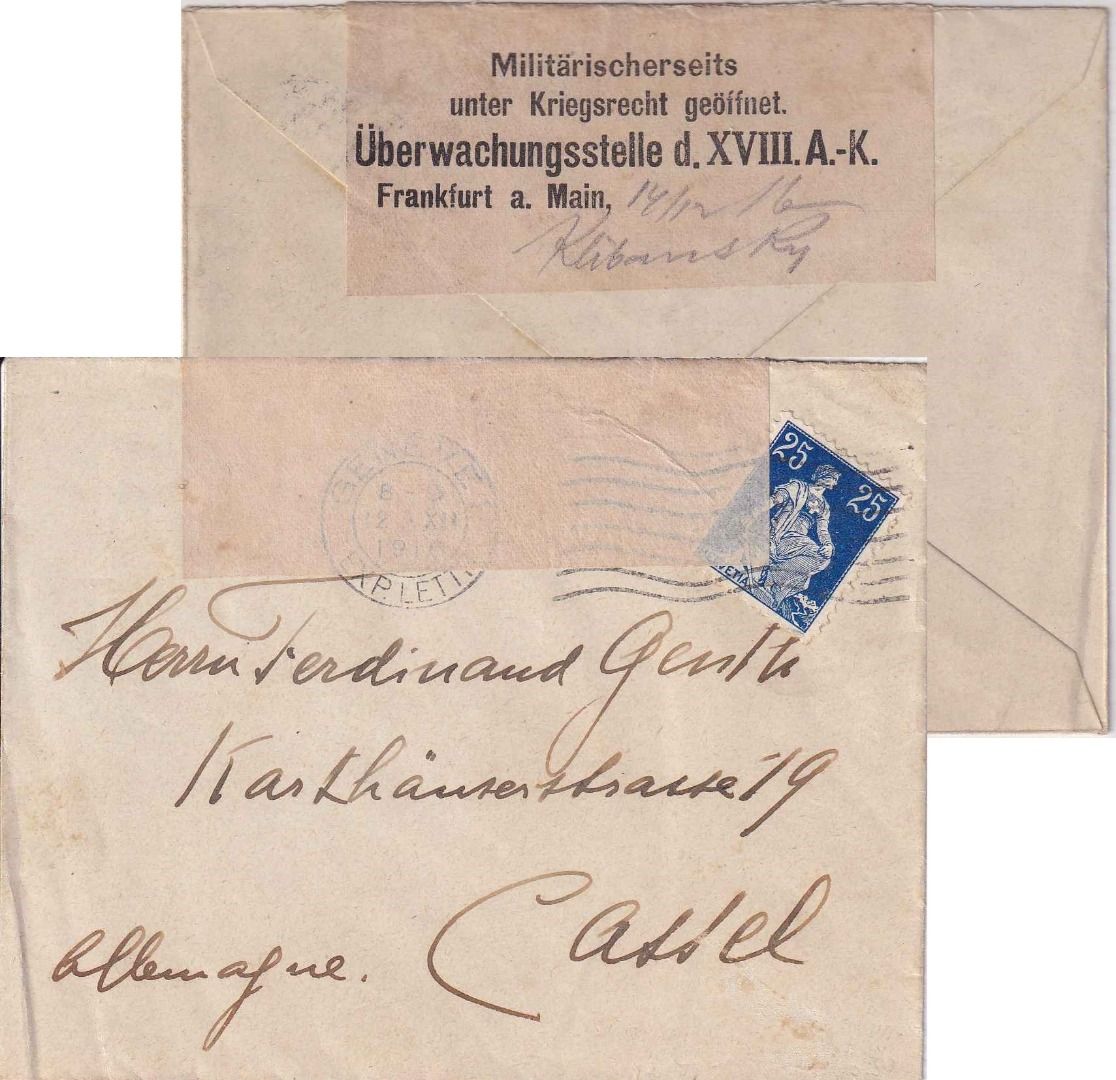 Militärischerseits
unter Kriegsrecht geöffnet.
Überwachungsstelle d. XVIII. A.-K.
Frankfurt a. Main, 14/12 16
Klibansky
GENÈVE
8-9
XII
191
EXP. LETTR
25
25
Herrn Ferdinand Genth
Karthäuserstrasse 19
Cassel
Allemagne.